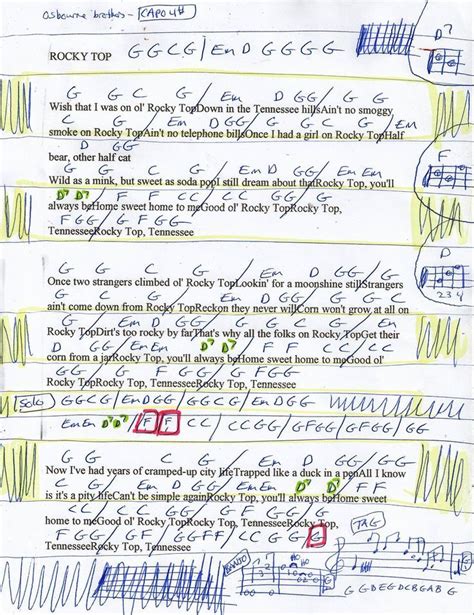 Osbourne brothers - CAPO 4#
D7
ROCKY TOP G G C G / Em D G G G G
G G C G / Em D G G / G G
Wish that I was on ol' Rocky TopDown in the Tennessee hillsAin't no smoggy
C G / Em D G G / G G C G
smoke on Rocky TopAin't no telephone billsOnce I had a girl on Rocky TopHalf
D GG
bear, other half cat
F
G G C G Em D GG / Em Em
Wild as a mink, but sweet as soda popI still dream about thatRocky Top, you'll
D7 D7 / F F CC / CC GG
always beHome sweet home to meGood ol' Rocky TopRocky Top,
F GG / G F GG
TennesseeRocky Top, Tennessee
D
2 3 4
G G C G / Em D GG / G
Once two strangers climbed ol' Rocky TopLookin' for a moonshine stillStrangers
G C G / Em D GG / G G
ain't come down from Rocky TopReckon they never willCorn won't grow at all on
Rocky TopDirt's too rocky by farThat's why all the folks on Rocky TopGet their
D7 D7 / F F CC / CC
corn from a jarRocky Top, you'll always beHome sweet home to meGood ol'
GG
Rocky TopRocky Top, TennesseeRocky Top, Tennessee
SOLO GGCG / EmDGG / GGCG / EmDGG
EmEm D7D7 / F F CC / CCGG / GFGG / GFGG / GG
G G
Now I've had years of cramped-up city lifeTrapped like a duck in a penAll I know
D7 D7
is it's a pity lifeCan't be simple againRocky Top, you'll always beHome sweet
home to meGood ol' Rocky TopRocky Top, TennesseeRocky Top,
TAG
TennesseeRocky Top, Tennessee
BANJO
G GDEGDCBGAB G